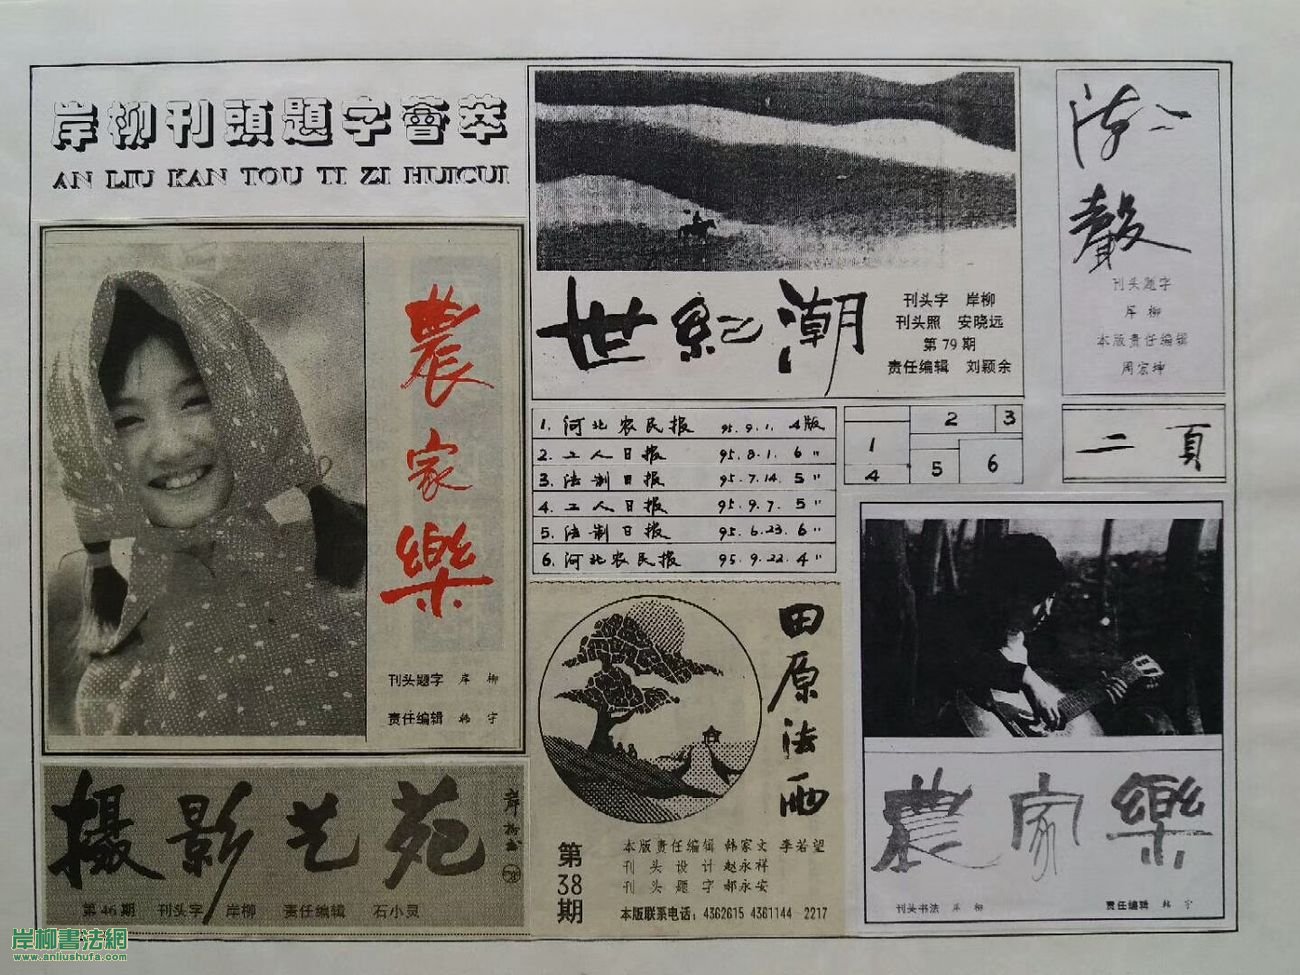 岸柳刊頭題字薈萃
AN LIU KAN TOU TI ZI HUICUI
農家樂
刊头题字 岸柳
责任编辑 韩宇
摄影艺苑
第46期 刊头字 岸柳 责任编辑 石小灵
世纪潮
刊头字 岸柳
刊头照 安晓远
第79期
责任编辑 刘颖余
1. 河北农民报 95.9.1. 4版
2. 工人日报 95.8.1. 6〃
3. 法制日报 95.7.14. 5〃
4. 工人日报 95.9.7. 5〃
5. 法制日报 95.6.23. 6〃
6. 河北农民报 95.9.22. 4〃
1
2
3
4
5
6
田原法雨
第38期
本版责任编辑 韩家文 李若望
刊头设计 赵永祥
刊头题字 郝永安
本版联系电话：4362615 4361144－2217
聲
刊头题字
岸柳
本版责任编辑
周宏坤
二頁
農家樂
刊头书法 岸柳
责任编辑 韩宇
岸柳書法網
www.anliushufa.com